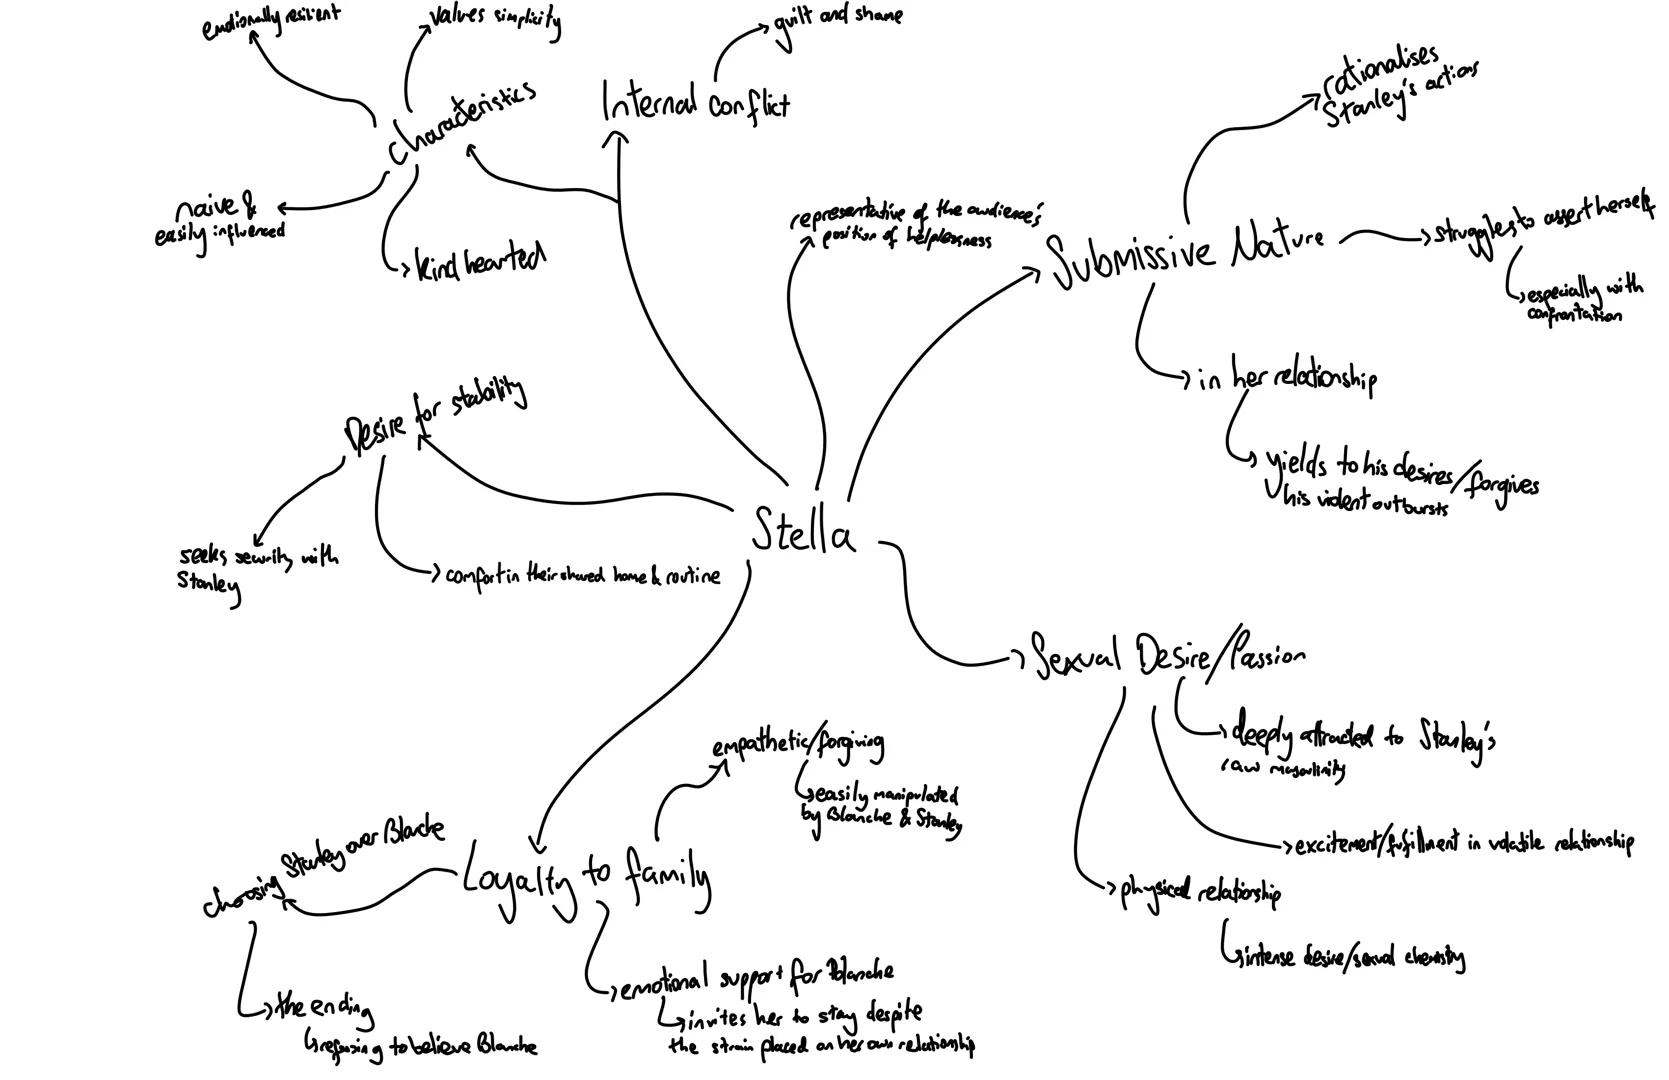 emotionally resilient
values simplicity
characteristics
naive &
easily influenced
kind hearted
Internal conflict
guilt and shame
representative of the audience's
position of helplessness
Submissive Nature
rationalises
Stanley's actions
struggles to assert herself
especially with
confrontation
in her relationship
yields to his desires/forgives
his violent outbursts
Desire for stability
seeks security with
Stanley
comfort in their shared home & routine
Stella
Sexual Desire/Passion
deeply attracted to Stanley's
raw masculinity
excitement/fulfillment in volatile relationship
physical relationship
intense desire/sexual chemistry
Loyalty to family
empathetic/forgiving
easily manipulated
by Blanche & Stanley
choosing Stanley over Blanche
the ending
refusing to believe Blanche
emotional support for Blanche
invites her to stay despite
the strain placed on her own relationship